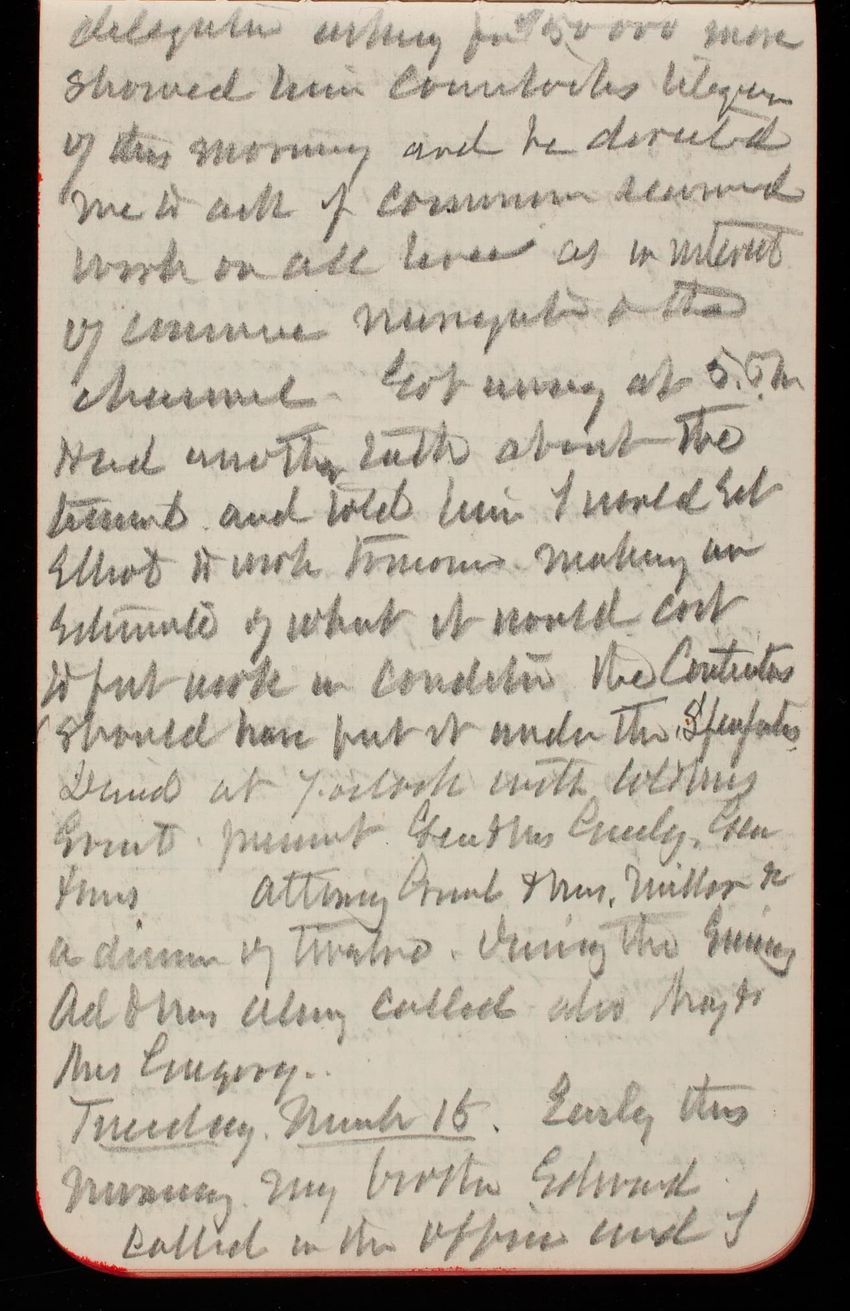 delegation asking for $50000 more
showed him Comstocks telegram
of this morning and he directed
me to ask if Commission
work on all levees as in interest
of commerce navigation & the
channel. Got away at 5.
Had another talk about the
and told him I would get
Elliot to work tomorrow making an
Estimate of what it would cost
to put work in condition the Contractors
should have put it under the Specifcatns
Dined at 7 oclock with Col & Mrs
Ernst. present Gen & Mrs Greely, Gen
& Mrs Attorney Genl & Mrs. Miller &c
a dinner of twelve. During the Evening
Ad & Mrs called also Maj &
Mrs Gregory.
Tuesday. March 15. Early this
morning my brother Edward
called in the office and I